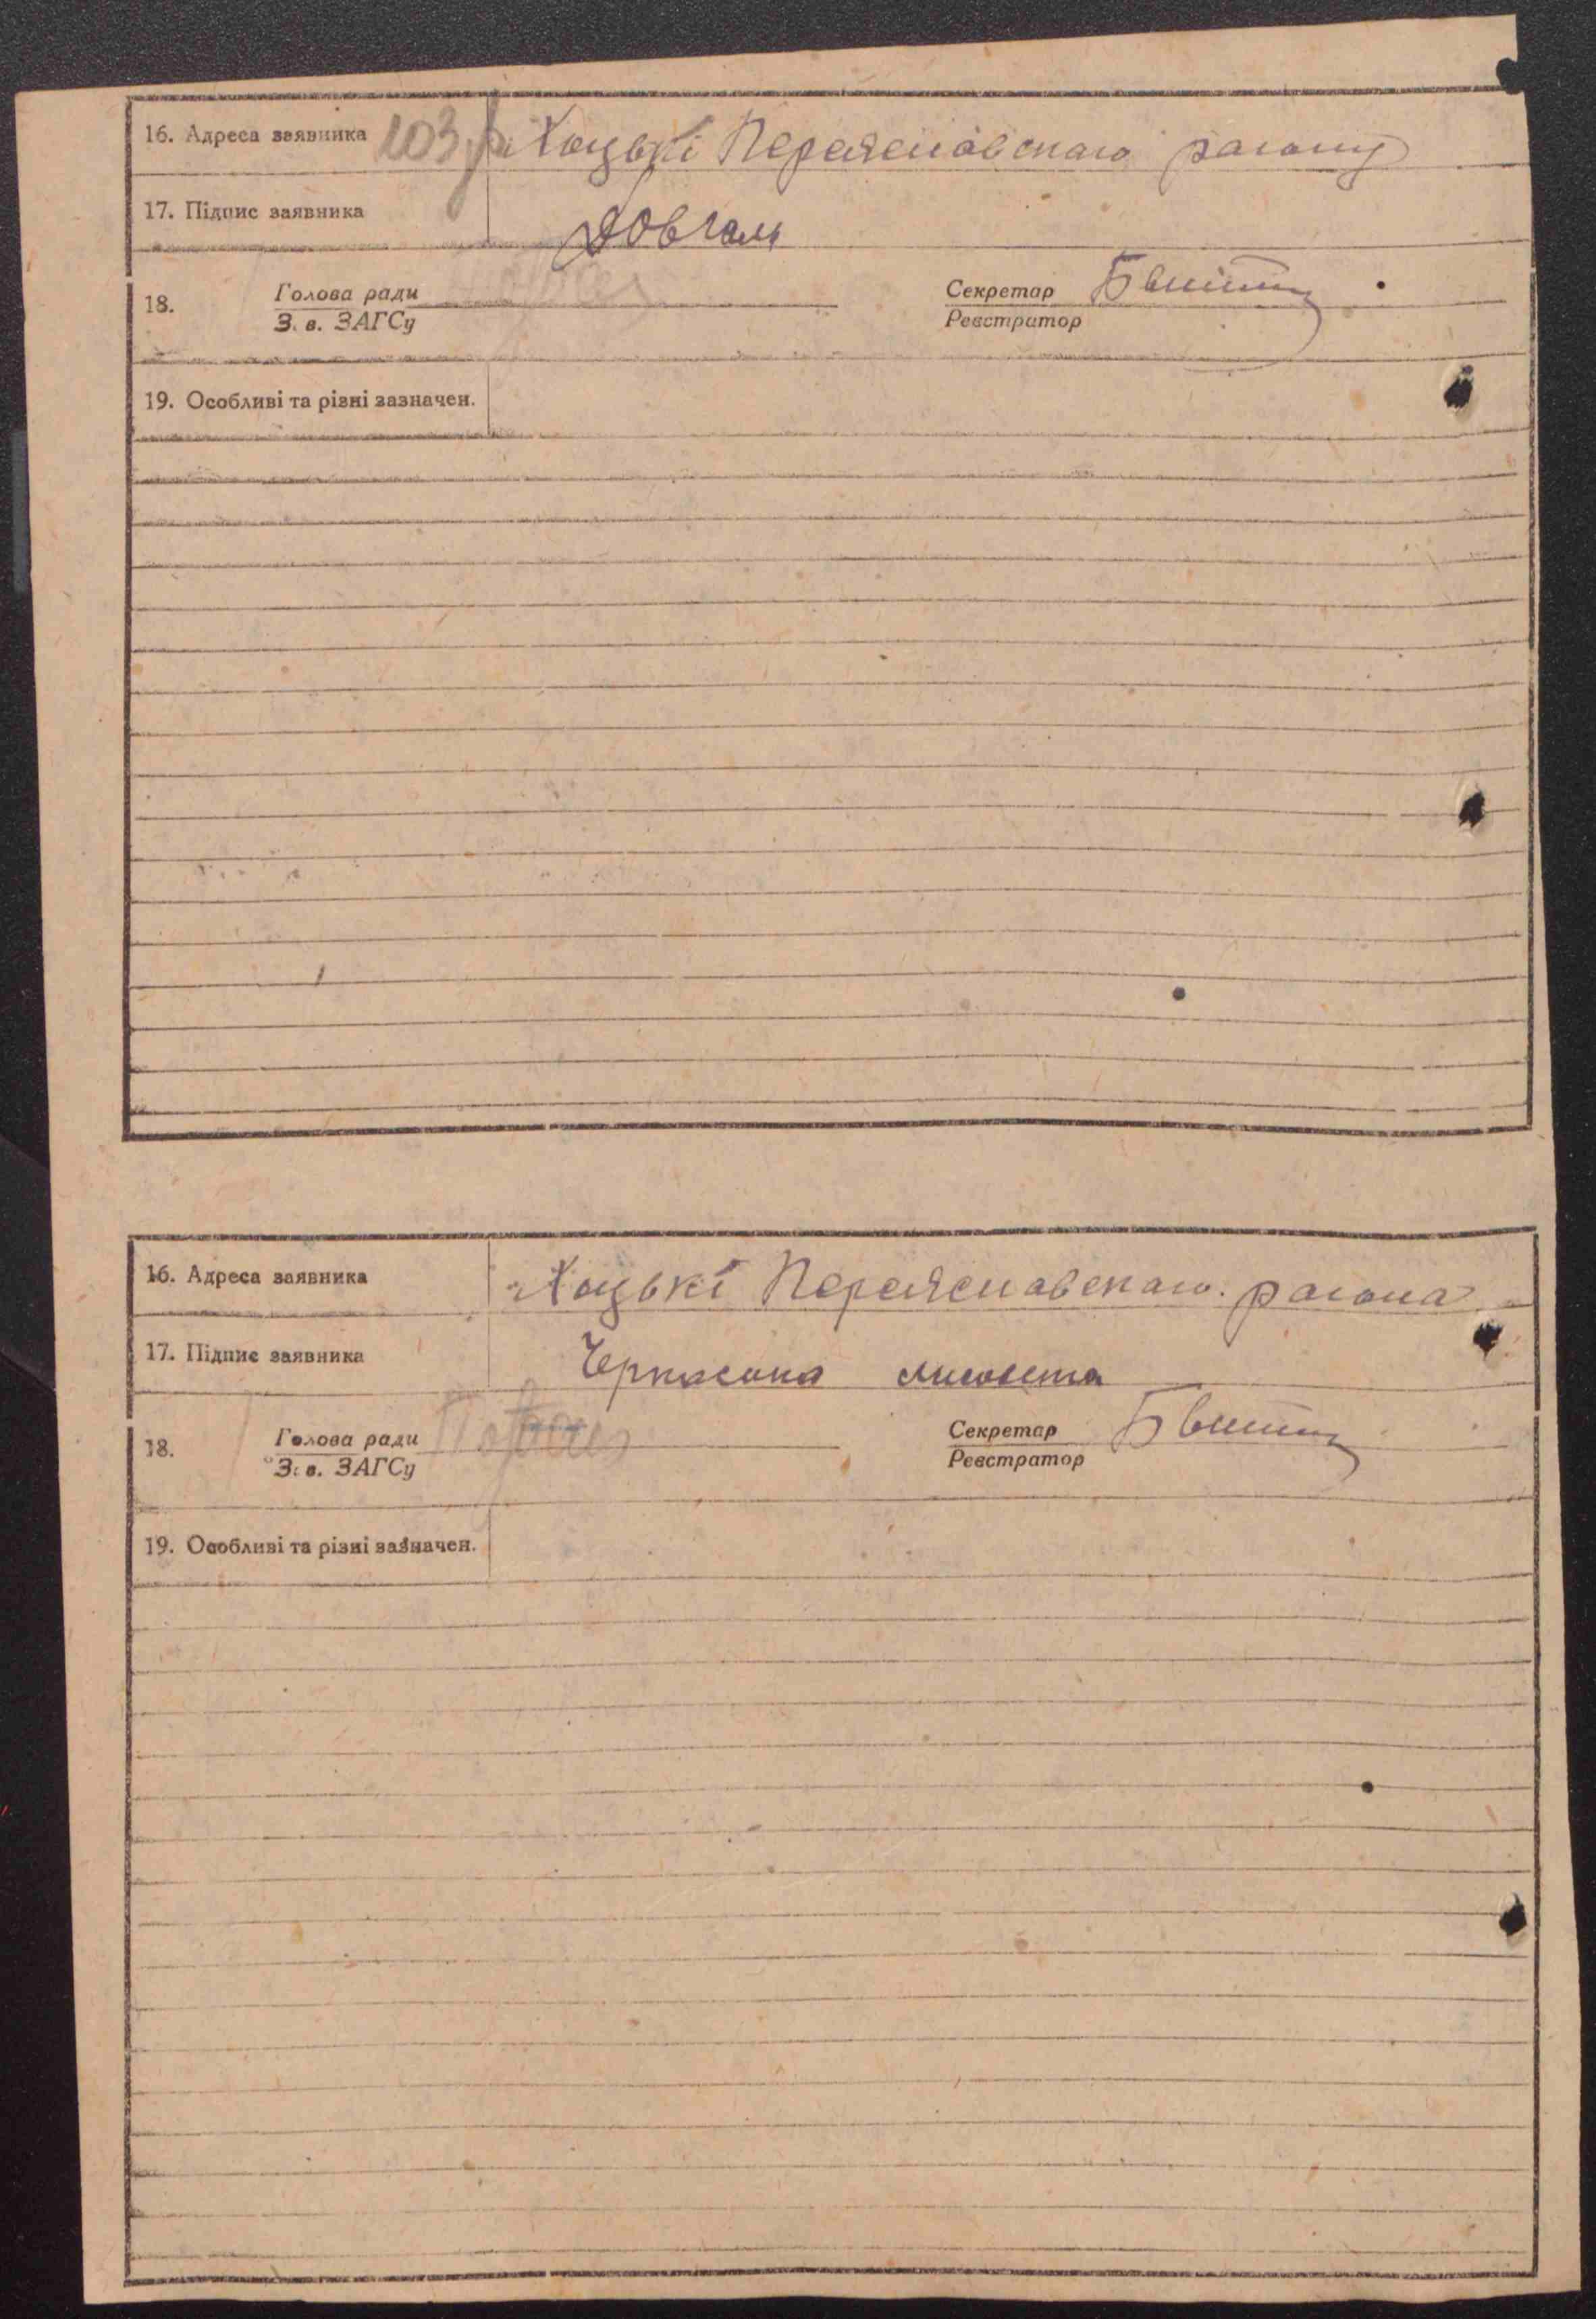 16. Адреса заявника 103 Хоцькі Переяславскаго району
17. Підпис заявника Довгаль
18. Голова ради Секретар
З. в. ЗАГСу Реєстратор
19. Особливі та різні зазначен.
16. Адреса заявника Хоцькі Переяславскаго. района
17. Підпис заявника Черкасила
18. Голова ради Секретар
З. в. ЗАГСу Реєстратор
19. Особливі та різні зазначен.